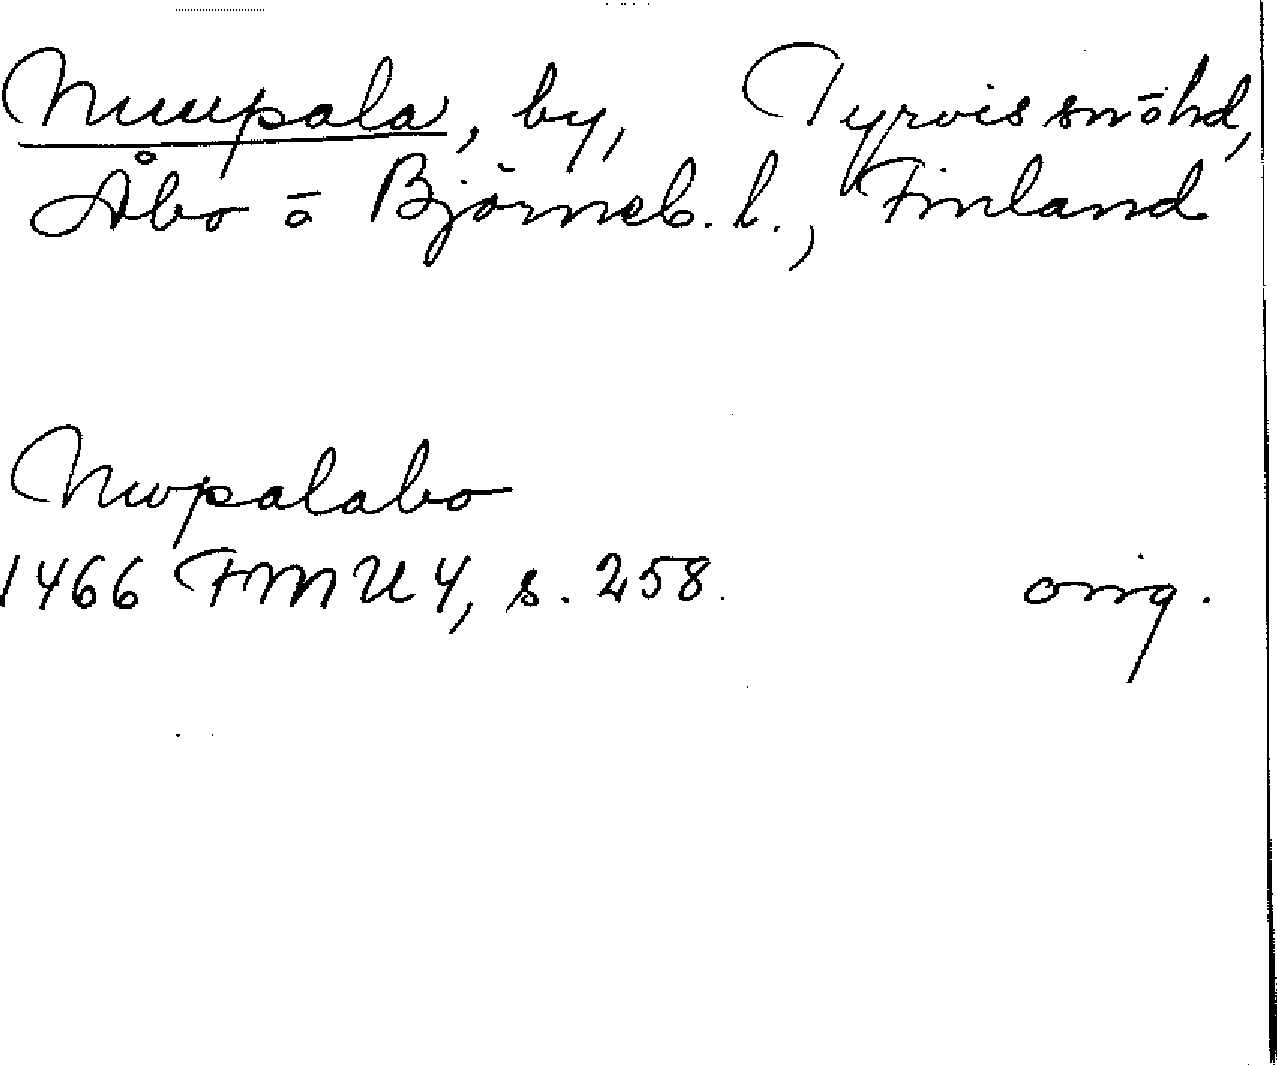 Nuupala, by, Tyrvis snöhd,
Åbo o Björneb. l., Finland
Nwpalabo
1466 FMU 4, s. 258.
orig.